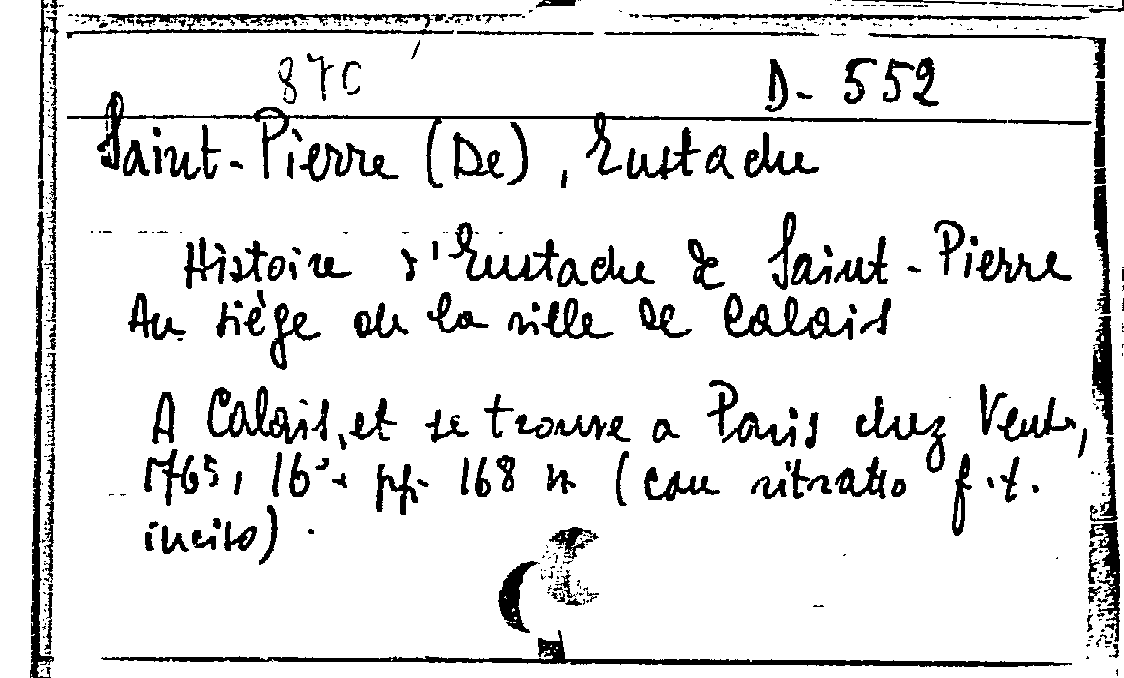 87C D- 552
Saint-Pierre (De), Eustache
Histoire d'Eustache de Saint-Pierre
Au siège de la ville de Calais
A Calais, et se trouve a Paris chez Vente,
1765, 16°. pp. 168 (con ritratto f.t.
inciso).